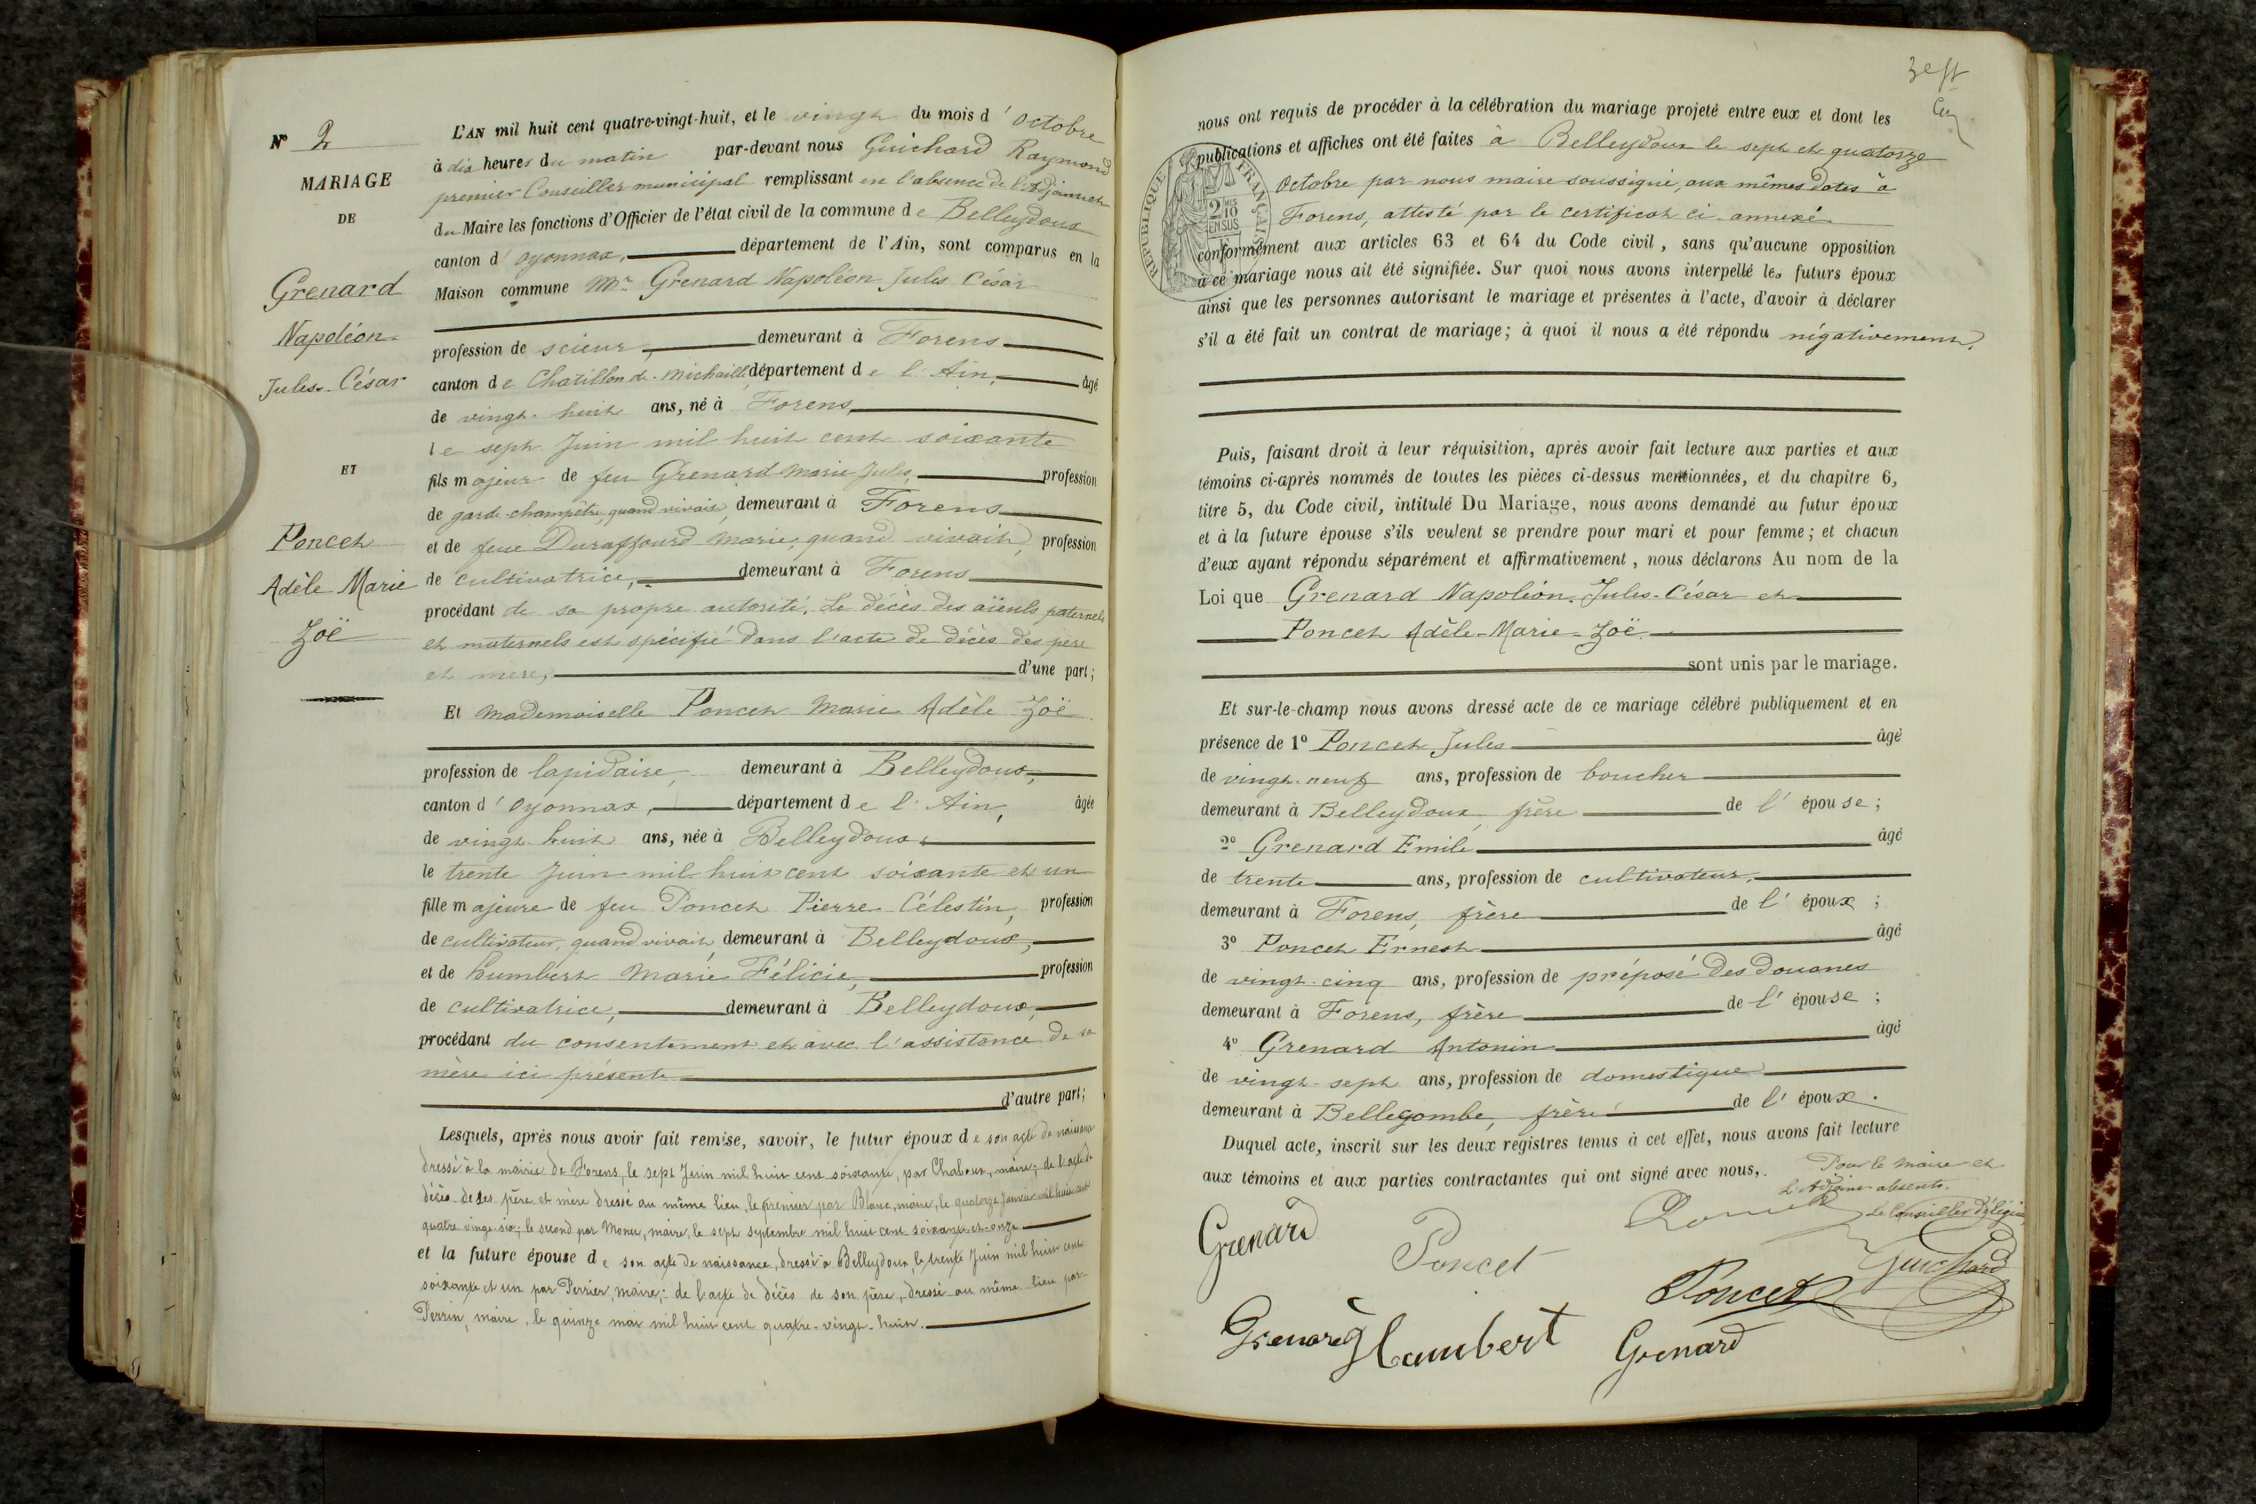 N° 2
MARIAGE
DE
Grenard
Napoléon
Jules-César
ET
Poncet
Adèle Marie
Zoë
L'AN mil huit cent quatre-vingt-huit, et le vingt du mois d'octobre
à dix heures du matin par-devant nous Guichard Raymond
premier Conseiller municipal remplissant en l'absence de l'Adjoint et
du Maire les fonctions d'Officier de l'état civil de la commune de Belleydoux
canton d'Oyonnax, département de l'Ain, sont comparus en la
Maison commune Mr Grenard Napoléon Jules César
profession de scieur, demeurant à Forens
canton de Chatillon-de-Michaille, département de l'Ain, âgé
de vingt-huit ans, né à Forens,
le sept Juin mil huit cent soixante
fils majeur de feu Grenard Marie Jules, profession
de garde-champêtre, quand vivait, demeurant à Forens
et de feue Duraffourd Marie, quand vivait, profession
de cultivatrice, demeurant à Forens
procédant de sa propre autorité. Le décès des aïeuls paternels
et maternels est spécifié dans l'acte de décès des père
et mère, d'une part;
Et Mademoiselle Poncet Marie Adèle Zoë
profession de lapidaire, demeurant à Belleydoux,
canton d'Oyonnax, département de l'Ain, âgée
de vingt-huit ans, née à Belleydoux
le trente Juin mil huit cent soixante et un
fille majeure de feu Poncet Pierre Célestin, profession
de cultivateur, quand vivait, demeurant à Belleydoux,
et de humbert Marie Félicie, profession
de cultivatrice, demeurant à Belleydoux,
procédant du consentement et avec l'assistance de sa
mère ici présente
d'autre part;
Lesquels, après nous avoir fait remise, savoir, le futur époux de son acte de naissance
dressé à la mairie de Forens, le sept Juin mil huit cent soixante, par Chaboux, maire; de l'acte de
décès de ses père et mère dressé au même lieu, le premier par Blanc, maire, le quatorze Janvier mil huit cent
quatre vingt-six; le second par Monet, maire, le sept septembre mil huit cent soixante-et-onze
et la future épouse de son acte de naissance, dressé à Belleydoux, le trente Juin mil huit cent
soixante et un par Perrier, maire; de l'acte de décès de son père, dressé au même lieu par
Perrin, maire, le quinze mai mil huit cent quatre-vingt-huit.
nous ont requis de procéder à la célébration du mariage projeté entre eux et dont les
publications et affiches ont été faites à Belleydoux le sept et quatorze
octobre par nous maire soussigné, aux mêmes dates à
Forens, attesté par le certificat ci-annexé
conformément aux articles 63 et 64 du Code civil, sans qu'aucune opposition
à ce mariage nous ait été signifiée. Sur quoi nous avons interpellé les futurs époux
ainsi que les personnes autorisant le mariage et présentes à l'acte, d'avoir à déclarer
s'il a été fait un contrat de mariage; à quoi il nous a été répondu négativement.
RÉPUBLIQUE FRANÇAISE
2/10 EN SUS
Puis, faisant droit à leur réquisition, après avoir fait lecture aux parties et aux
témoins ci-après nommés de toutes les pièces ci-dessus mentionnées, et du chapitre 6,
titre 5, du Code civil, intitulé Du Mariage, nous avons demandé au futur époux
et à la future épouse s'ils veulent se prendre pour mari et pour femme; et chacun
d'eux ayant répondu séparément et affirmativement, nous déclarons Au nom de la
Loi que Grenard Napoléon-Jules-César et
Poncet Adèle-Marie-Zoë
sont unis par le mariage.
Et sur-le-champ nous avons dressé acte de ce mariage célébré publiquement et en
présence de 1° Poncet Jules âgé
de vingt-neuf ans, profession de boucher
demeurant à Belleydoux, frère de l'épouse;
2° Grenard Emile âgé
de trente ans, profession de cultivateur,
demeurant à Forens, frère de l'époux;
3° Poncet Ernest âgé
de vingt-cinq ans, profession de préposé des douanes
demeurant à Forens, frère de l'épouse;
4° Grenard Antonin âgé
de vingt-sept ans, profession de domestique
demeurant à Bellecombe, frère de l'époux.
Duquel acte, inscrit sur les deux registres tenus à cet effet, nous avons fait lecture
aux témoins et aux parties contractantes qui ont signé avec nous,.
Pour le Maire et
l'Adjoint absents.
Le Conseiller délégué
Grenard
Poncet
Guichard
Poncet
Grenard
Humbert
Grenard